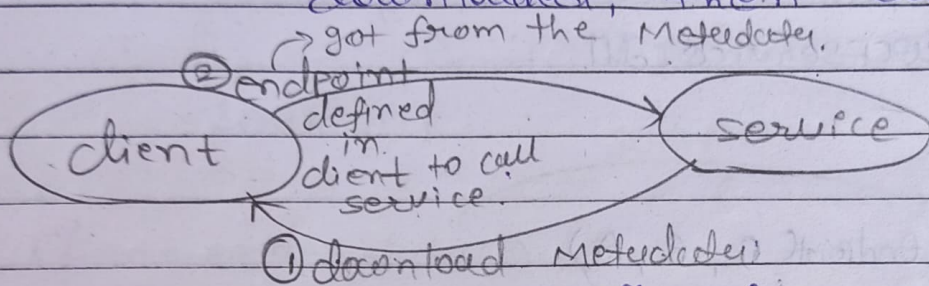 got from the Metadata.
② endpoint
defined
in
client to call
service.
client
service
① download Metadata